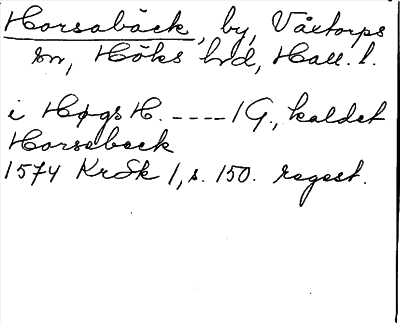 Horsabäck, by, Våxtorps
sn, Höks hrd, Hall. l.
i Høgs H. ---- 1 G., kaldet
Horsebeck
1574 KrSk 1, s. 150. regest.